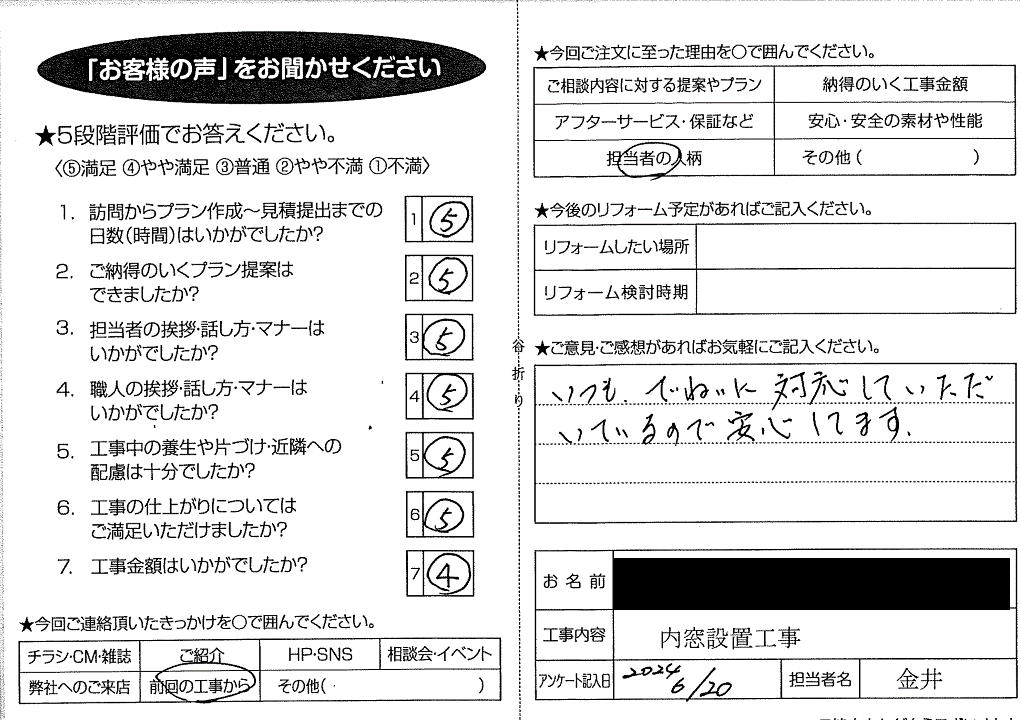 「お客様の声」をお聞かせください
★5段階評価でお答えください。
〈⑤満足 ④やや満足 ③普通 ②やや不満 ①不満〉
1. 訪問からプラン作成～見積提出までの
日数(時間)はいかがでしたか?
1 ⑤
2. ご納得のいくプラン提案は
できましたか?
2 ⑤
3. 担当者の挨拶・話し方・マナーは
いかがでしたか?
3 ⑤
4. 職人の挨拶・話し方・マナーは
いかがでしたか?
4 ⑤
5. 工事中の養生や片づけ・近隣への
配慮は十分でしたか?
5 ⑤
6. 工事の仕上がりについては
ご満足いただけましたか?
6 ⑤
7. 工事金額はいかがでしたか?
7 ④
★今回ご連絡頂いたきっかけを○で囲んでください。
チラシ・CM・雑誌 ご紹介 HP・SNS 相談会・イベント
弊社へのご来店 前回の工事から その他( )
谷折り
★今回ご注文に至った理由を○で囲んでください。
ご相談内容に対する提案やプラン 納得のいく工事金額
アフターサービス・保証など 安心・安全の素材や性能
担当者の人柄 その他( )
★今後のリフォーム予定があればご記入ください。
リフォームしたい場所
リフォーム検討時期
★ご意見・ご感想があればお気軽にご記入ください。
いつも、でねいに対応していただ
いているので安心してます.
お名前
工事内容 内窓設置工事
アンケート記入日 2024 6/20 担当者名 金井